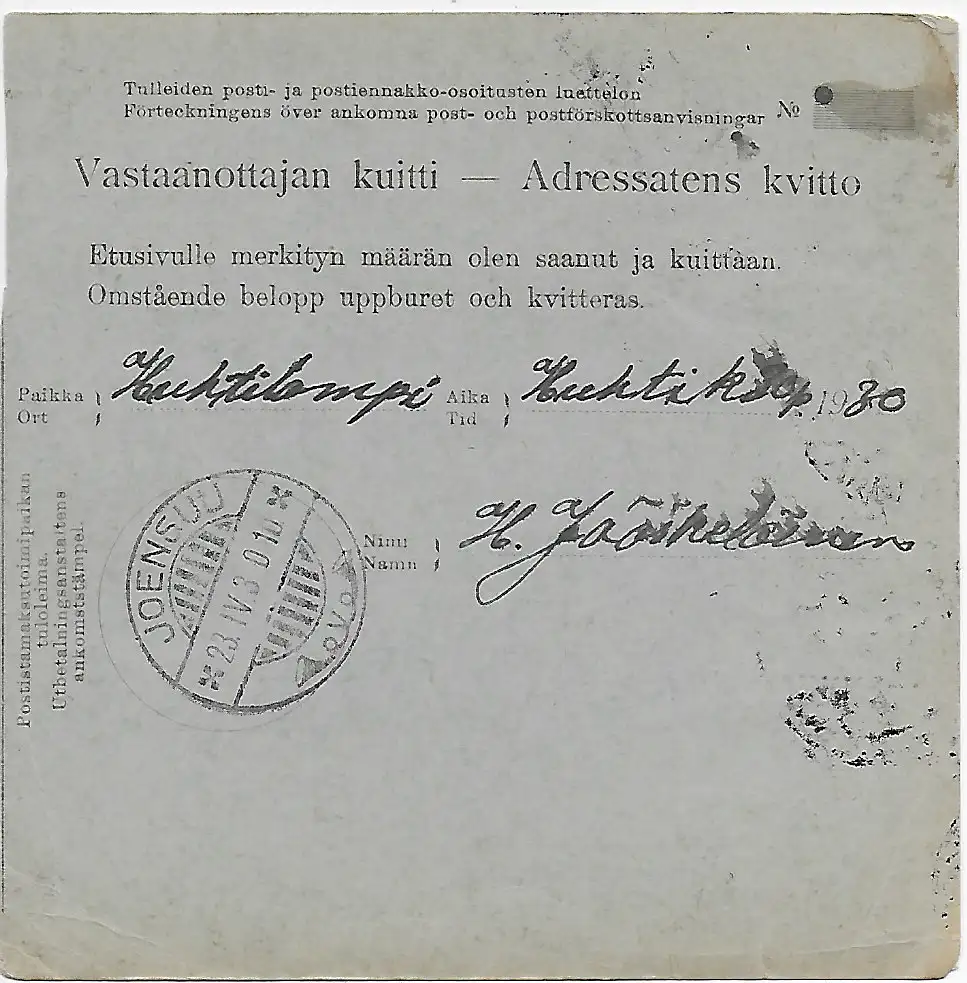 Tulleiden posti- ja postiennakko-osoitusten luettelon
Förteckningens över ankomna post- och postförskottsanvisningar No
Vastaanottajan kuitti — Adressatens kvitto
Etusivulle merkityn määrän olen saanut ja kuittaan.
Omstående belopp uppburet och kvitteras.
Paikka Huhtilampi Aika 1930
Ort Tid
Nimi H. Jääskeläinen
Namn
Postistamaksutoimipaikan
tuloleima.
Utbetalningsanstaltens
ankomststämpel.
JOENSUU
23.IV.30.10